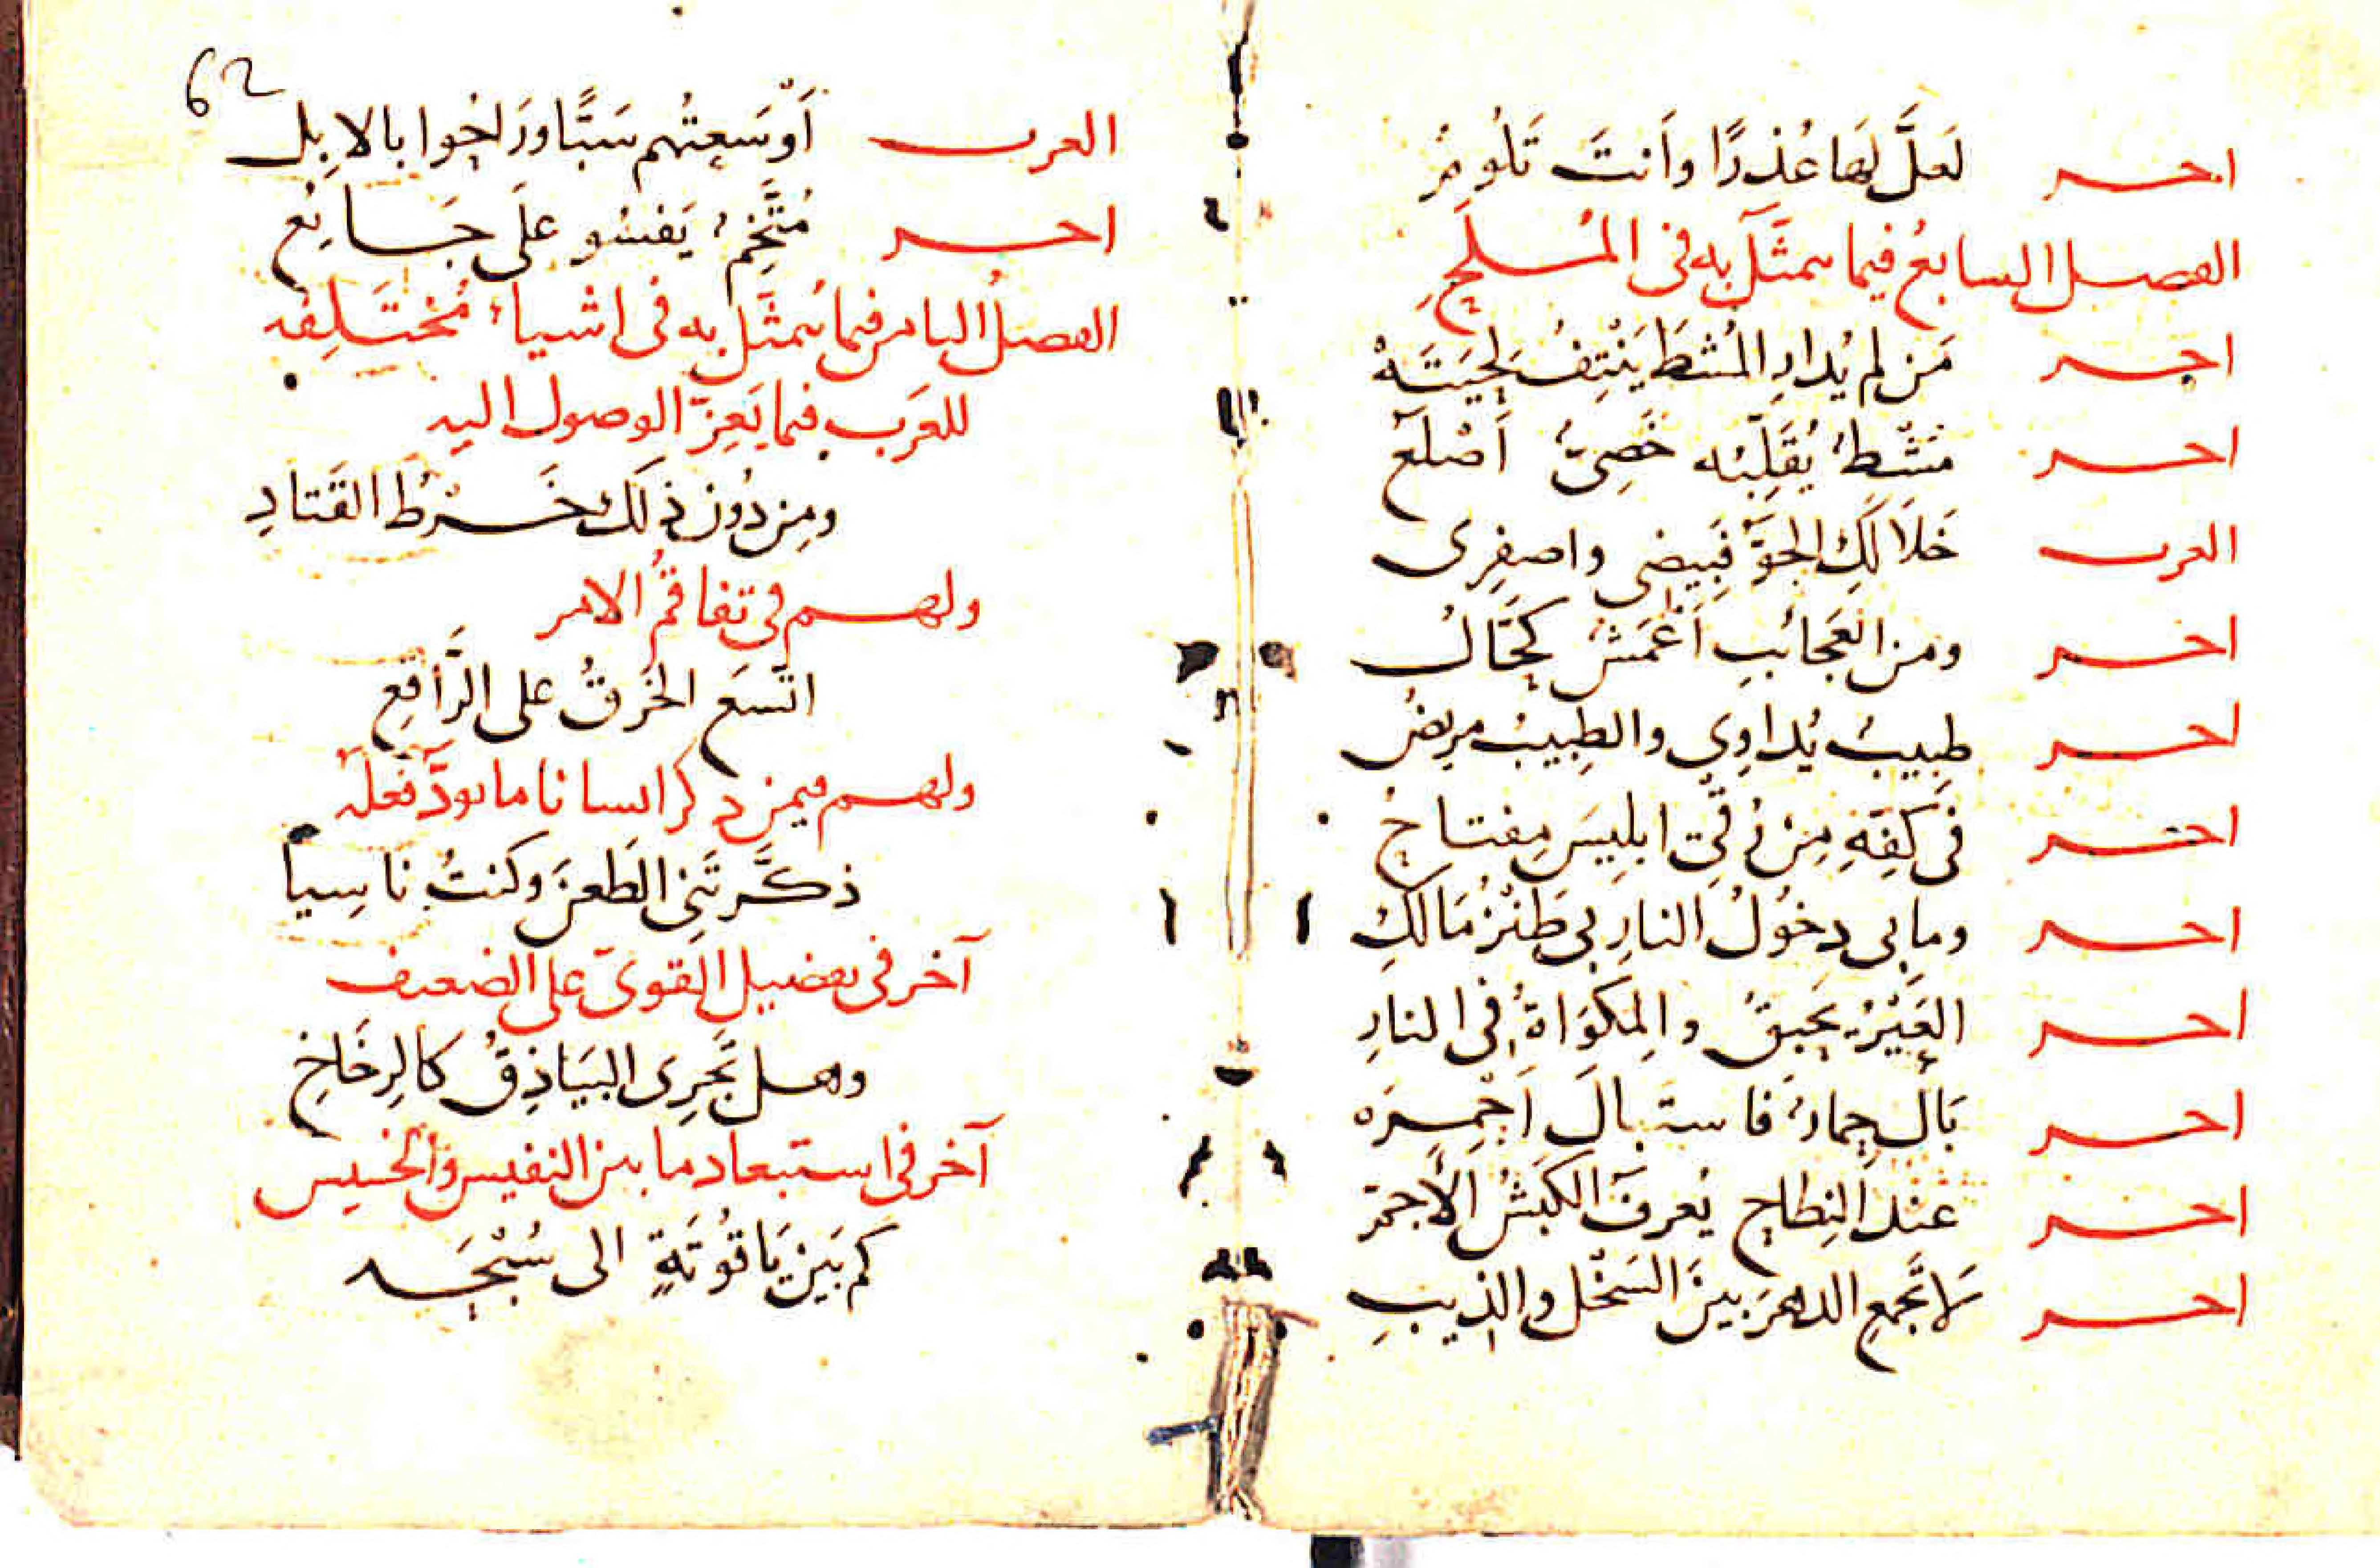 اخر لَعلَّ لَها عُذرًا وأنتَ تَلُومُ
الفصل السابعُ فيما يتمثَّل به فى المُلَحِ
اخر مَن لم يُدارِ المُشطَ يَنْتِفُ لِحيَتَهْ
اخر مُشْطٌ يُقَلِّبُه خَصِىٌّ أصْلَع
العرب خَلَا لَكِ الجَوُّ فَبِيضِى واصفِرِى
اخر ومن العَجائبِ أعْمَشٌ كَحَّالُ
اخر طبِيبٌ يُداوِي والطبِيبُ مريضُ
اخر فى كَفِّهِ مِنْ رُقَى ابلِيسَ مِفتاحُ
اخر وما بى دخُولُ النارِ بى طَنْزُ مَالكِ
اخر العَيْرُ يَحبِقُ والمِكوَاةُ فى النارِ
اخر بَالَ حِمارٌ فاستبالَ أحْمِرَه
اخر عندَ النِطاحِ يُعرفُ الكَبشُ الأجمّ
اخر لا تَجمعِ الدهرَ بينَ السَخْلِ والذيبِ
62
العرب أوْسَعتُهم سَبًّا ورَاحُوا بالابِل
اخر مُتَّخِمٌ يَفسُو علَى جَائعِ
الفصلُ الثامن فيما يُتمثَّل به فى اشياءَ مُختَلِفه
للعَرَب فيما يَعِزّ الوصول اليه
ومِن دُون ذلكَ خَرْطُ القَتادِ
ولهم فى تفاقُم الامر
اتّسَعَ الخَرقُ على الرَّاقعِ
ولهم فيمن ذكر انسانا ما يودّ فعله
ذكَّرتَنِى الطَعنَ وكنتُ ناسِيا
آخر فى تفضيل القوىّ على الضعيف
وهل تَجرِى البَيَاذِقُ كالرِخَاخِ
آخر فى استبعاد ما بين النفيس والخسيس
كم بَين يَاقُوتَةٍ الى سُبْجَه